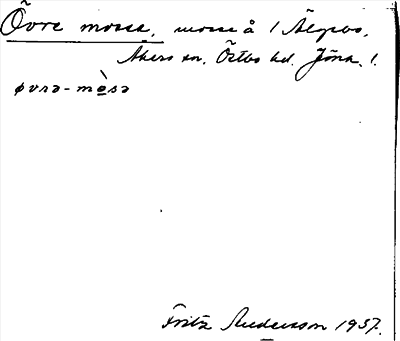 Övre mosse, mosse å 1 Älgbo,
Åkers sn. Östbo hd. Jönk. l.
øvrə-mò̠sə
Fritz Andersson 1937.